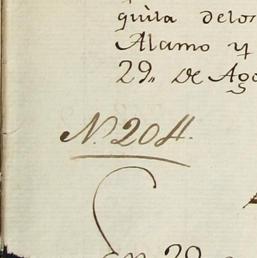 quita delos
Alamo y
29,, De Ago
N. 204.
en 29